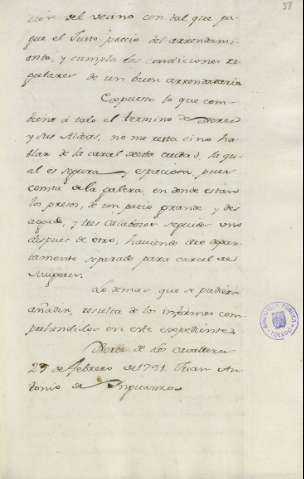 cion del vecino con tal que pa-
gue el Justo precio del arrendami-
ento, y cumpla las condiciones re-
gulares de un buen arrendatario
Expuesto lo que com-
biene á todo el termino de
y sus Aldeas, no me resta sino ha-
blar de la carcel desta ciudad, la qu-
al es segura y espaciosa, pues
consta de la galera, en donde estan
los presos, de un patio grande y des-
aogado, y tres calabozos seguidos uno
despues de otro, haviendo otro apar-
tamento separado para carcel de
Mugeres.
Lo demas que se podria
añadir, resulta de los informes com-
prehendidos en este expediente.
de los Cavalleros
27 de febrero de 1791. Juan An-
tonio de